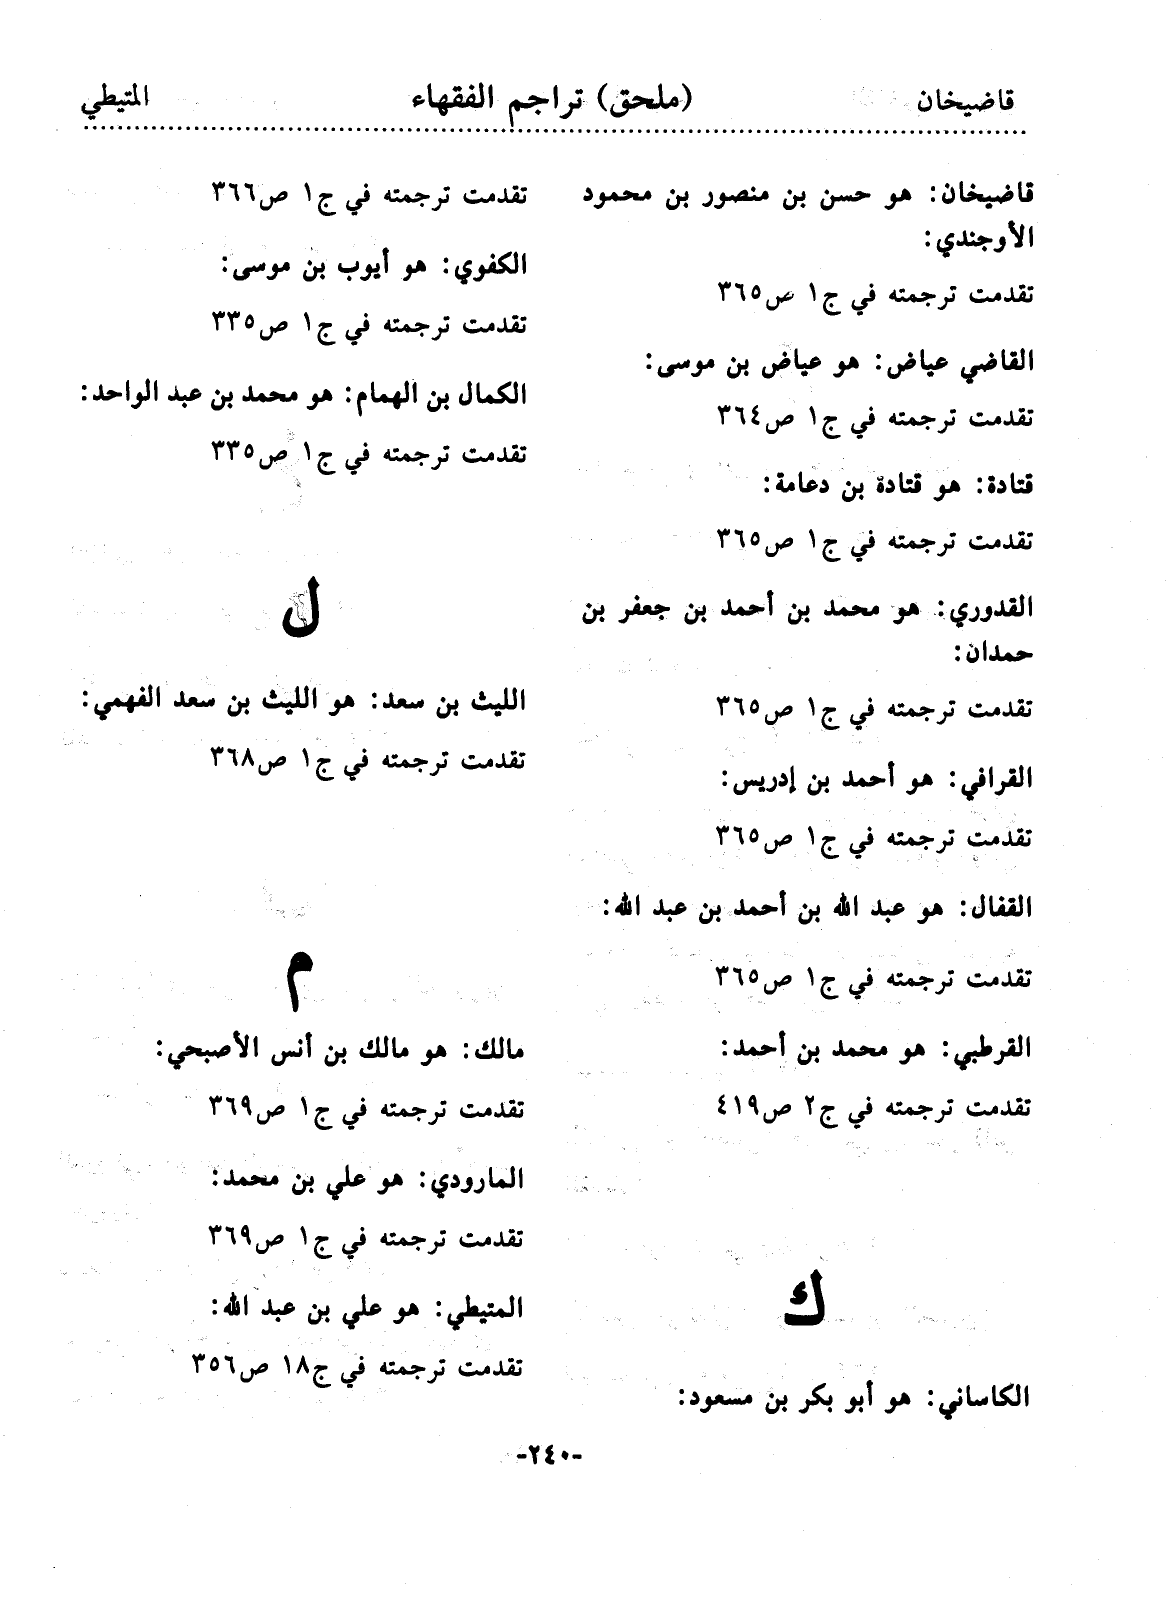 قاضيخان
(ملحق) تراجم الفقهاء
المتيطي
قاضيخان: هو حسن بن منصور بن محمود
الأوجندي:
تقدمت ترجمته في ج١ ص٣٦٥
القاضي عياض: هو عياض بن موسى:
تقدمت ترجمته في ج١ ص٣٦٤
قتادة: هو قتادة بن دعامة:
تقدمت ترجمته في ج١ ص٣٦٥
القدوري: هو محمد بن أحمد بن جعفر بن
حمدان:
تقدمت ترجمته في ج١ ص٣٦٥
القرافي: هو أحمد بن إدريس:
تقدمت ترجمته في ج١ ص٣٦٥
القفال: هو عبد الله بن أحمد بن عبد الله:
تقدمت ترجمته في ج١ ص٣٦٥
القرطبي: هو محمد بن أحمد:
تقدمت ترجمته في ج٢ ص٤١٩
ك
الكاساني: هو أبو بكر بن مسعود:
تقدمت ترجمته في ج١ ص٣٦٦
الكفوي: هو أيوب بن موسى:
تقدمت ترجمته في ج١ ص٣٣٥
الكمال بن الهمام: هو محمد بن عبد الواحد:
تقدمت ترجمته في ج١ ص٣٣٥
ل
الليث بن سعد: هو الليث بن سعد الفهمي:
تقدمت ترجمته في ج١ ص٣٦٨
م
مالك: هو مالك بن أنس الأصبحي:
تقدمت ترجمته في ج١ ص٣٦٩
المارودي: هو علي بن محمد:
تقدمت ترجمته في ج١ ص٣٦٩
المتيطي: هو علي بن عبد الله:
تقدمت ترجمته في ج١٨ ص٣٥٦
-٢٤٠-